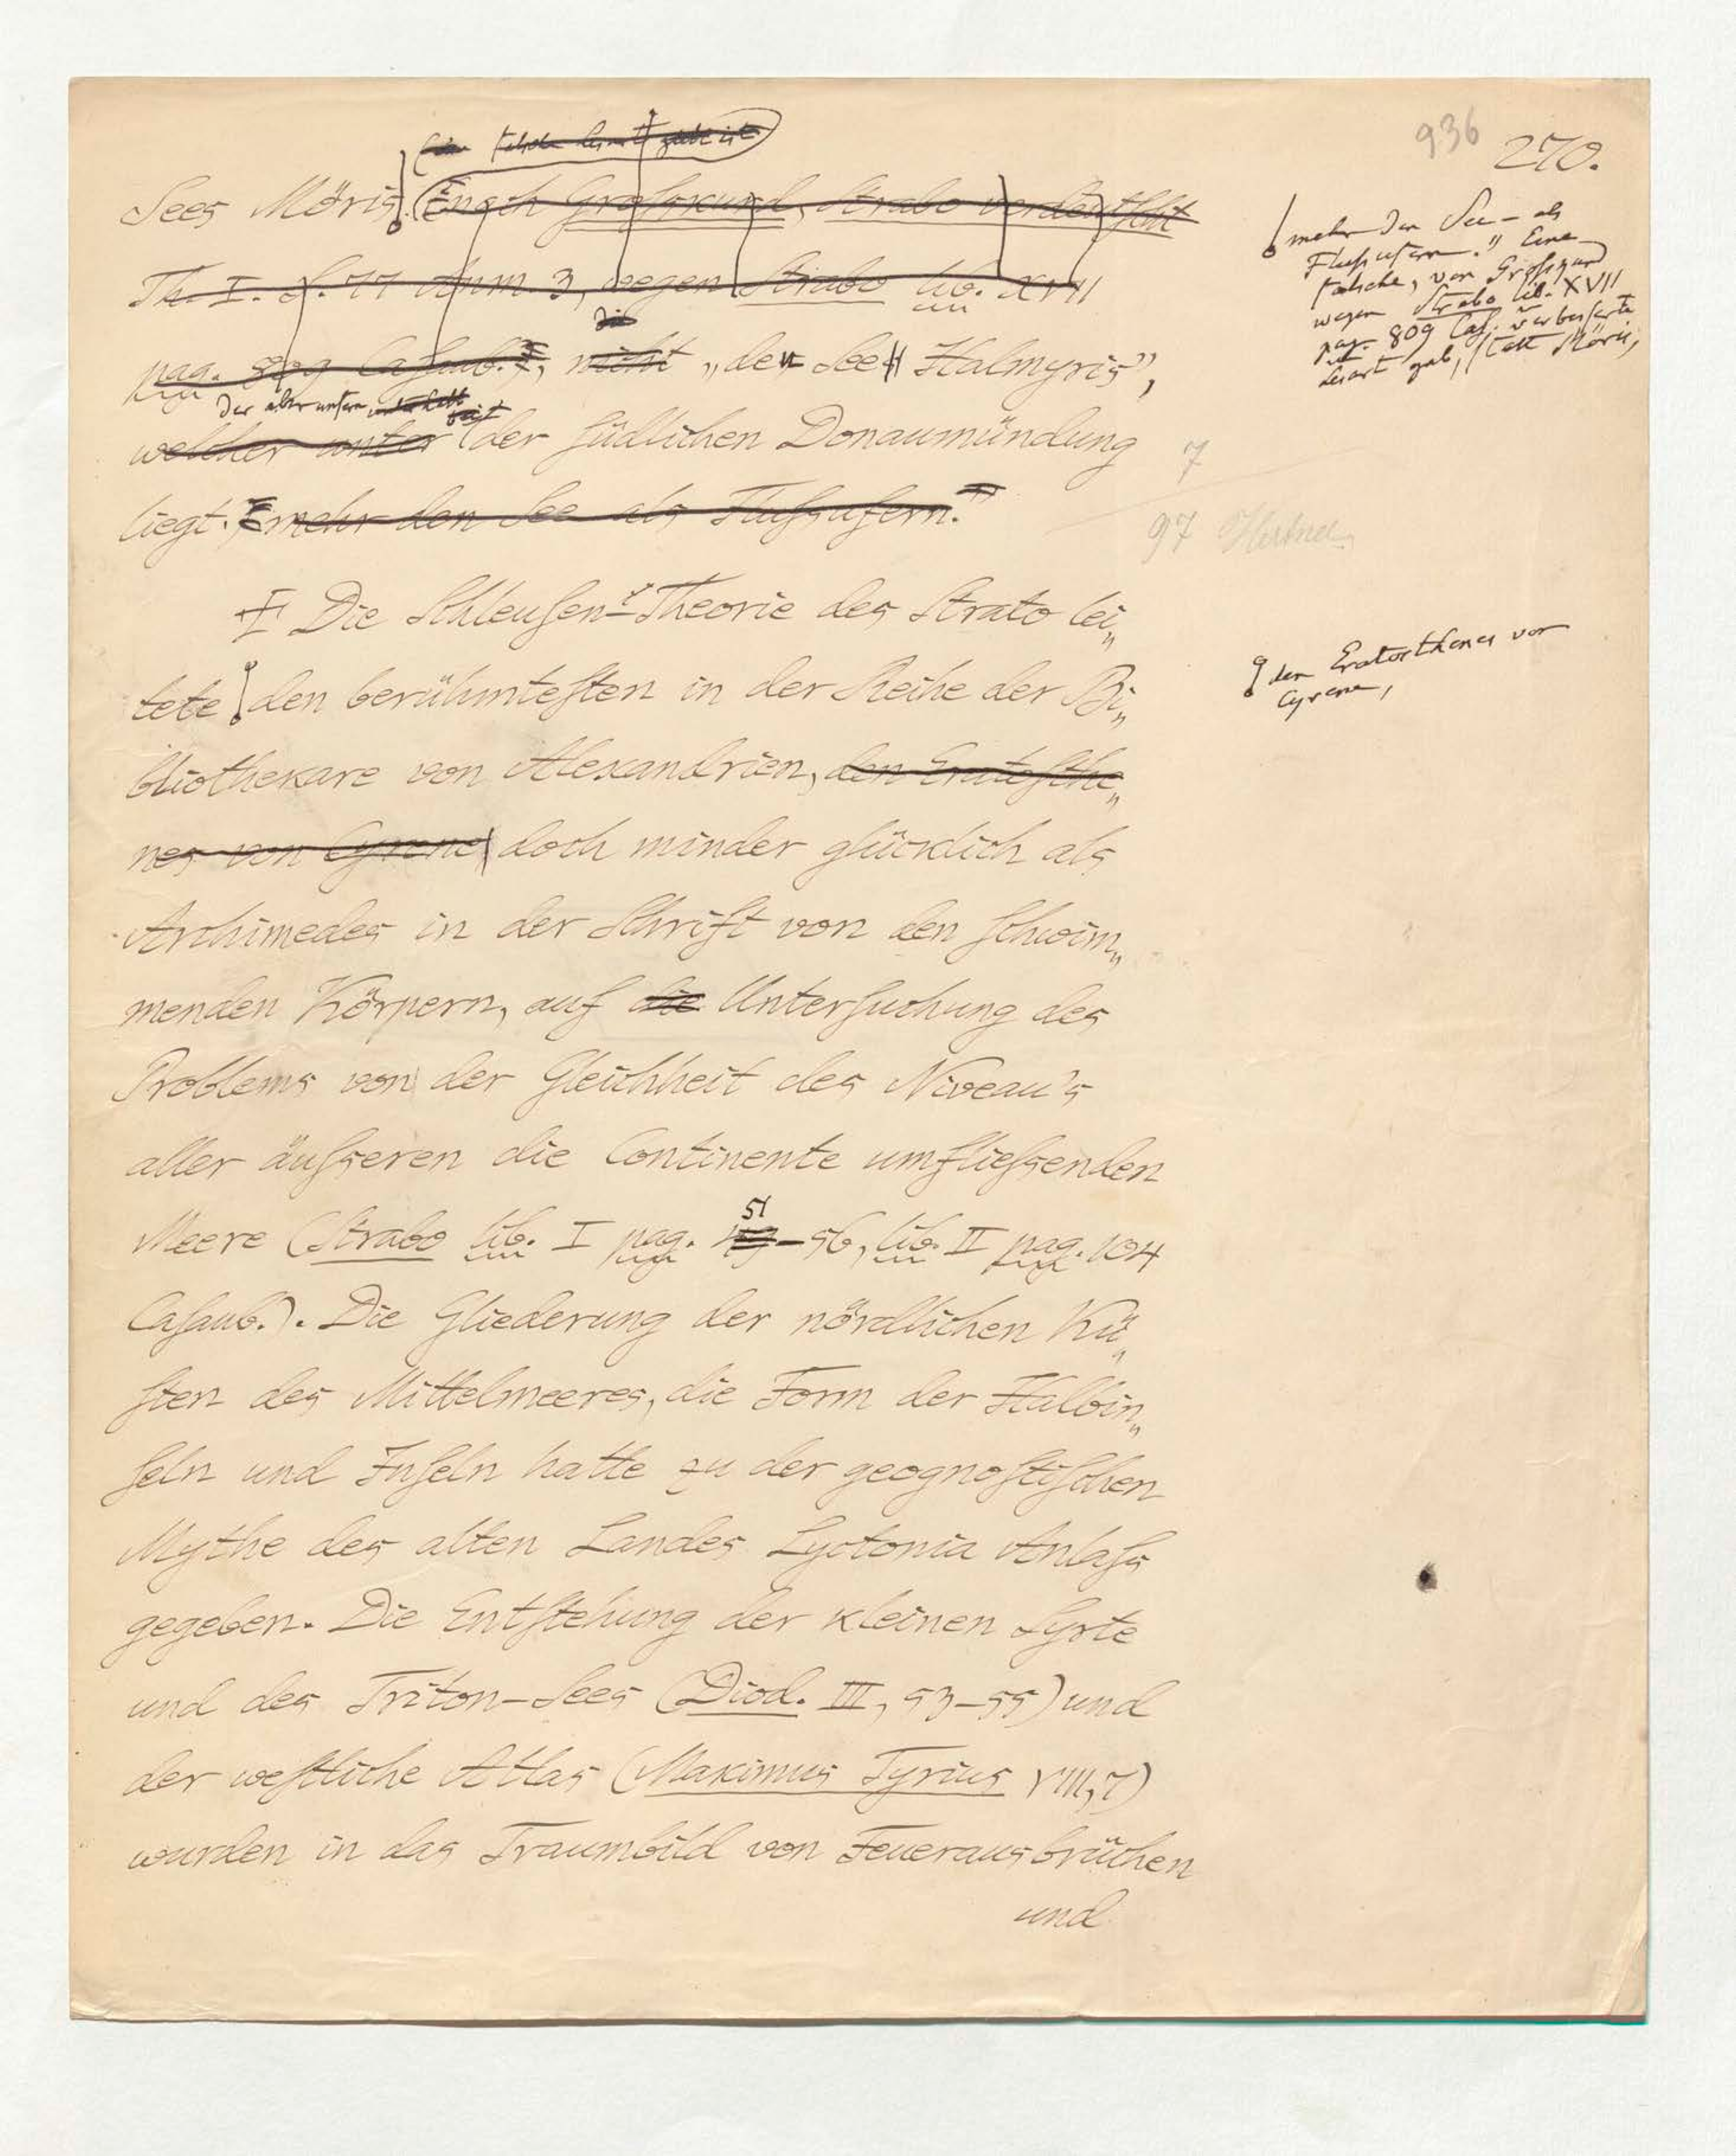 936
270.
Sees Möris (nach Groſskurd, Strabo verdeutſcht
Th. I. S. 77 Anm. 3, wegen Strabo lib. XVII
die
pag. 809 Caſaub.), nicht „den See Halmyris",
der aber unfern
welcher unter der ſüdlichen Donaumündung
liegt. mehr den See als Fluſsufern."
mehr den See – als
Fluſsufern." Eine
falsche, von Groſskurd
wegen Strabo lib. XVII
pag. 809 Caſ. verbeſserte
Lesart gab, ſtatt Möris,
7
97
Die Schleuſen-Theorie des Strato lei„
tete den berühmteſten in der Reihe der Bi„
den Eratosthenes von
Cyrene,
bliothekare von Alexandrien, den Eratoſthe„
nes von Cyrene doch minder glücklich als
Archimedes in der Schrift von den ſchwim„
menden Körpern, auf die Unterſuchung des
Problems von der Gleichheit des Niveau's
aller äuſseren die Continente umflieſsenden
51
Meere (Strabo lib. I pag. 49–56, lib. II pag. 104
Caſaub.). Die Gliederung der nördlichen Kü„
ſten des Mittelmeeres, die Form der Halbin„
ſeln und Inſeln hatte zu der geognoſtiſchen
Mythe des alten Landes Lyctonia Anlaſs
gegeben. Die Entſtehung der kleinen Syrte
und des Triton-Sees (Diod. III, 53–55) und
der weſtliche Atlas (Maximus Tyrius VIII, 7)
wurden in das Traumbild von Feuerausbrüchen
und